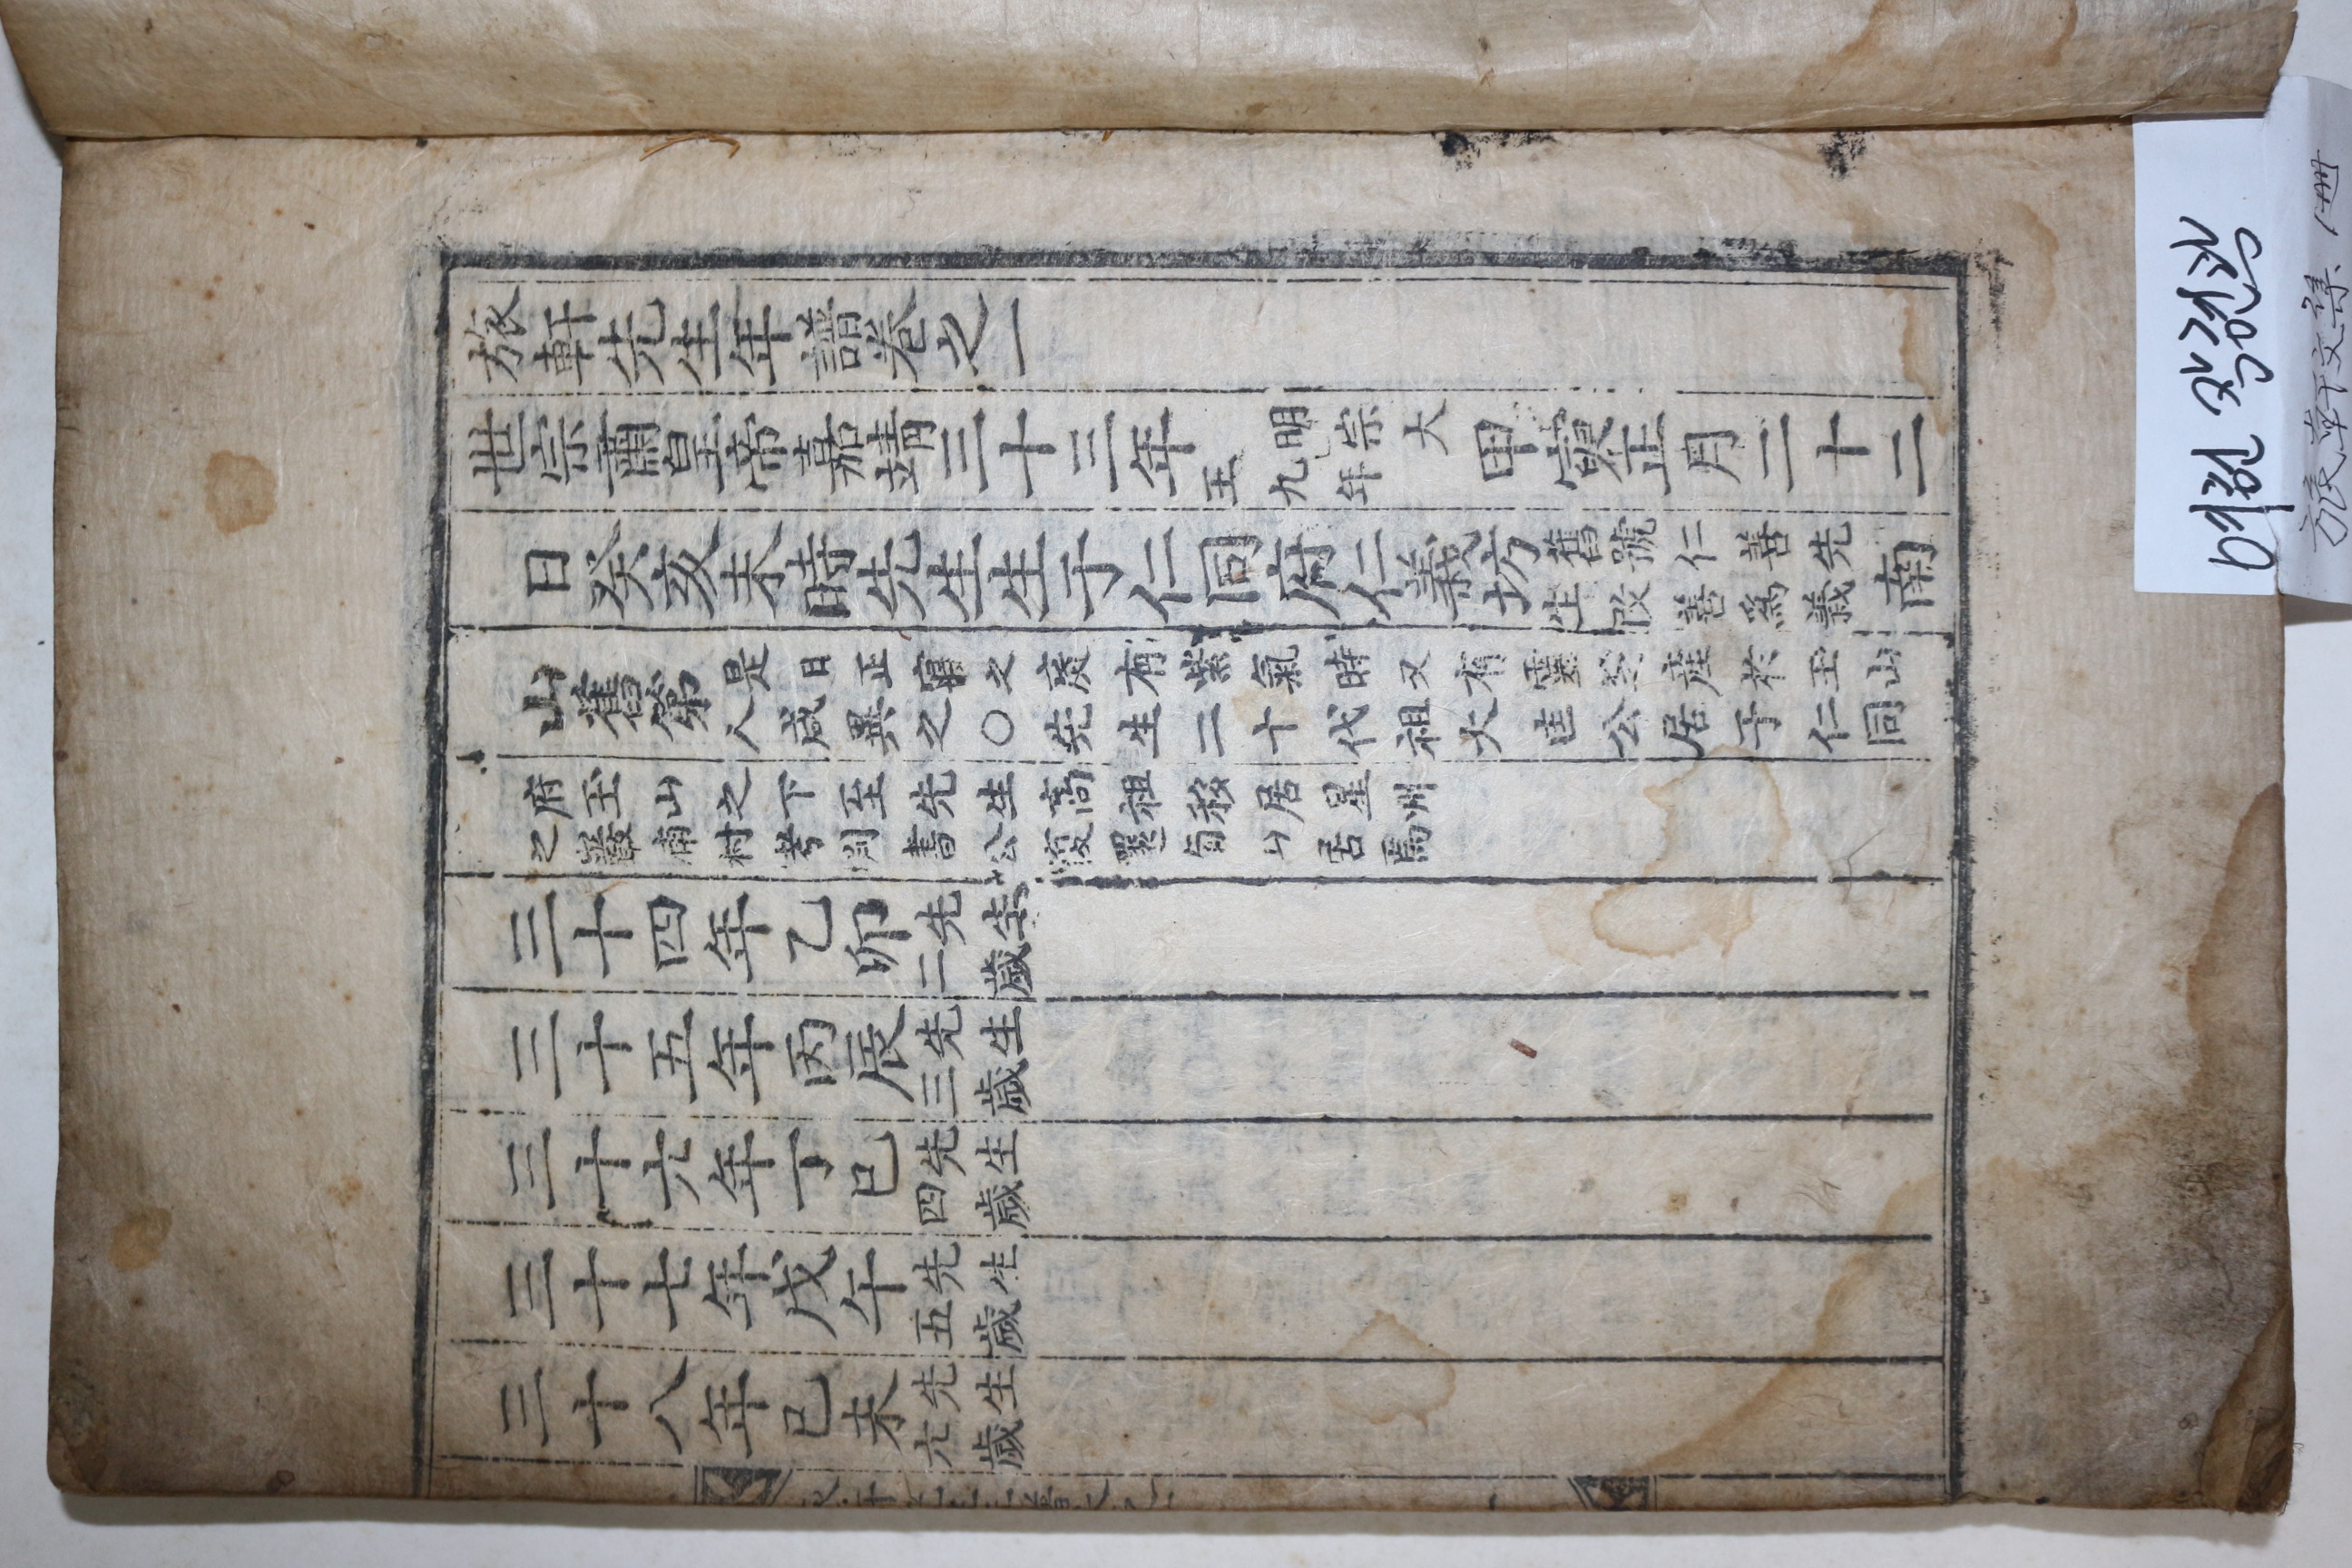 旅軒先生年譜卷之一
世宗肅皇帝嘉靖三十三年明宗大王九年甲寅正月二十二
日癸亥未時先生生于仁同府仁義坊舊號仁善先生改善爲義南
山舊第是日正寢之處有紫氣時又有靈芝産於玉山人咸異之○先生二十代祖大匡公居于仁同
府玉山之下至先生高祖移居星州之巖南村考判書公復還居焉
三十四年乙卯先生二歲
三十五年丙辰先生三歲
三十六年丁巳先生四歲
三十七年戊午先生五歲
三十八年己未先生六歲
여헌 장현광
旅軒文集 1冊